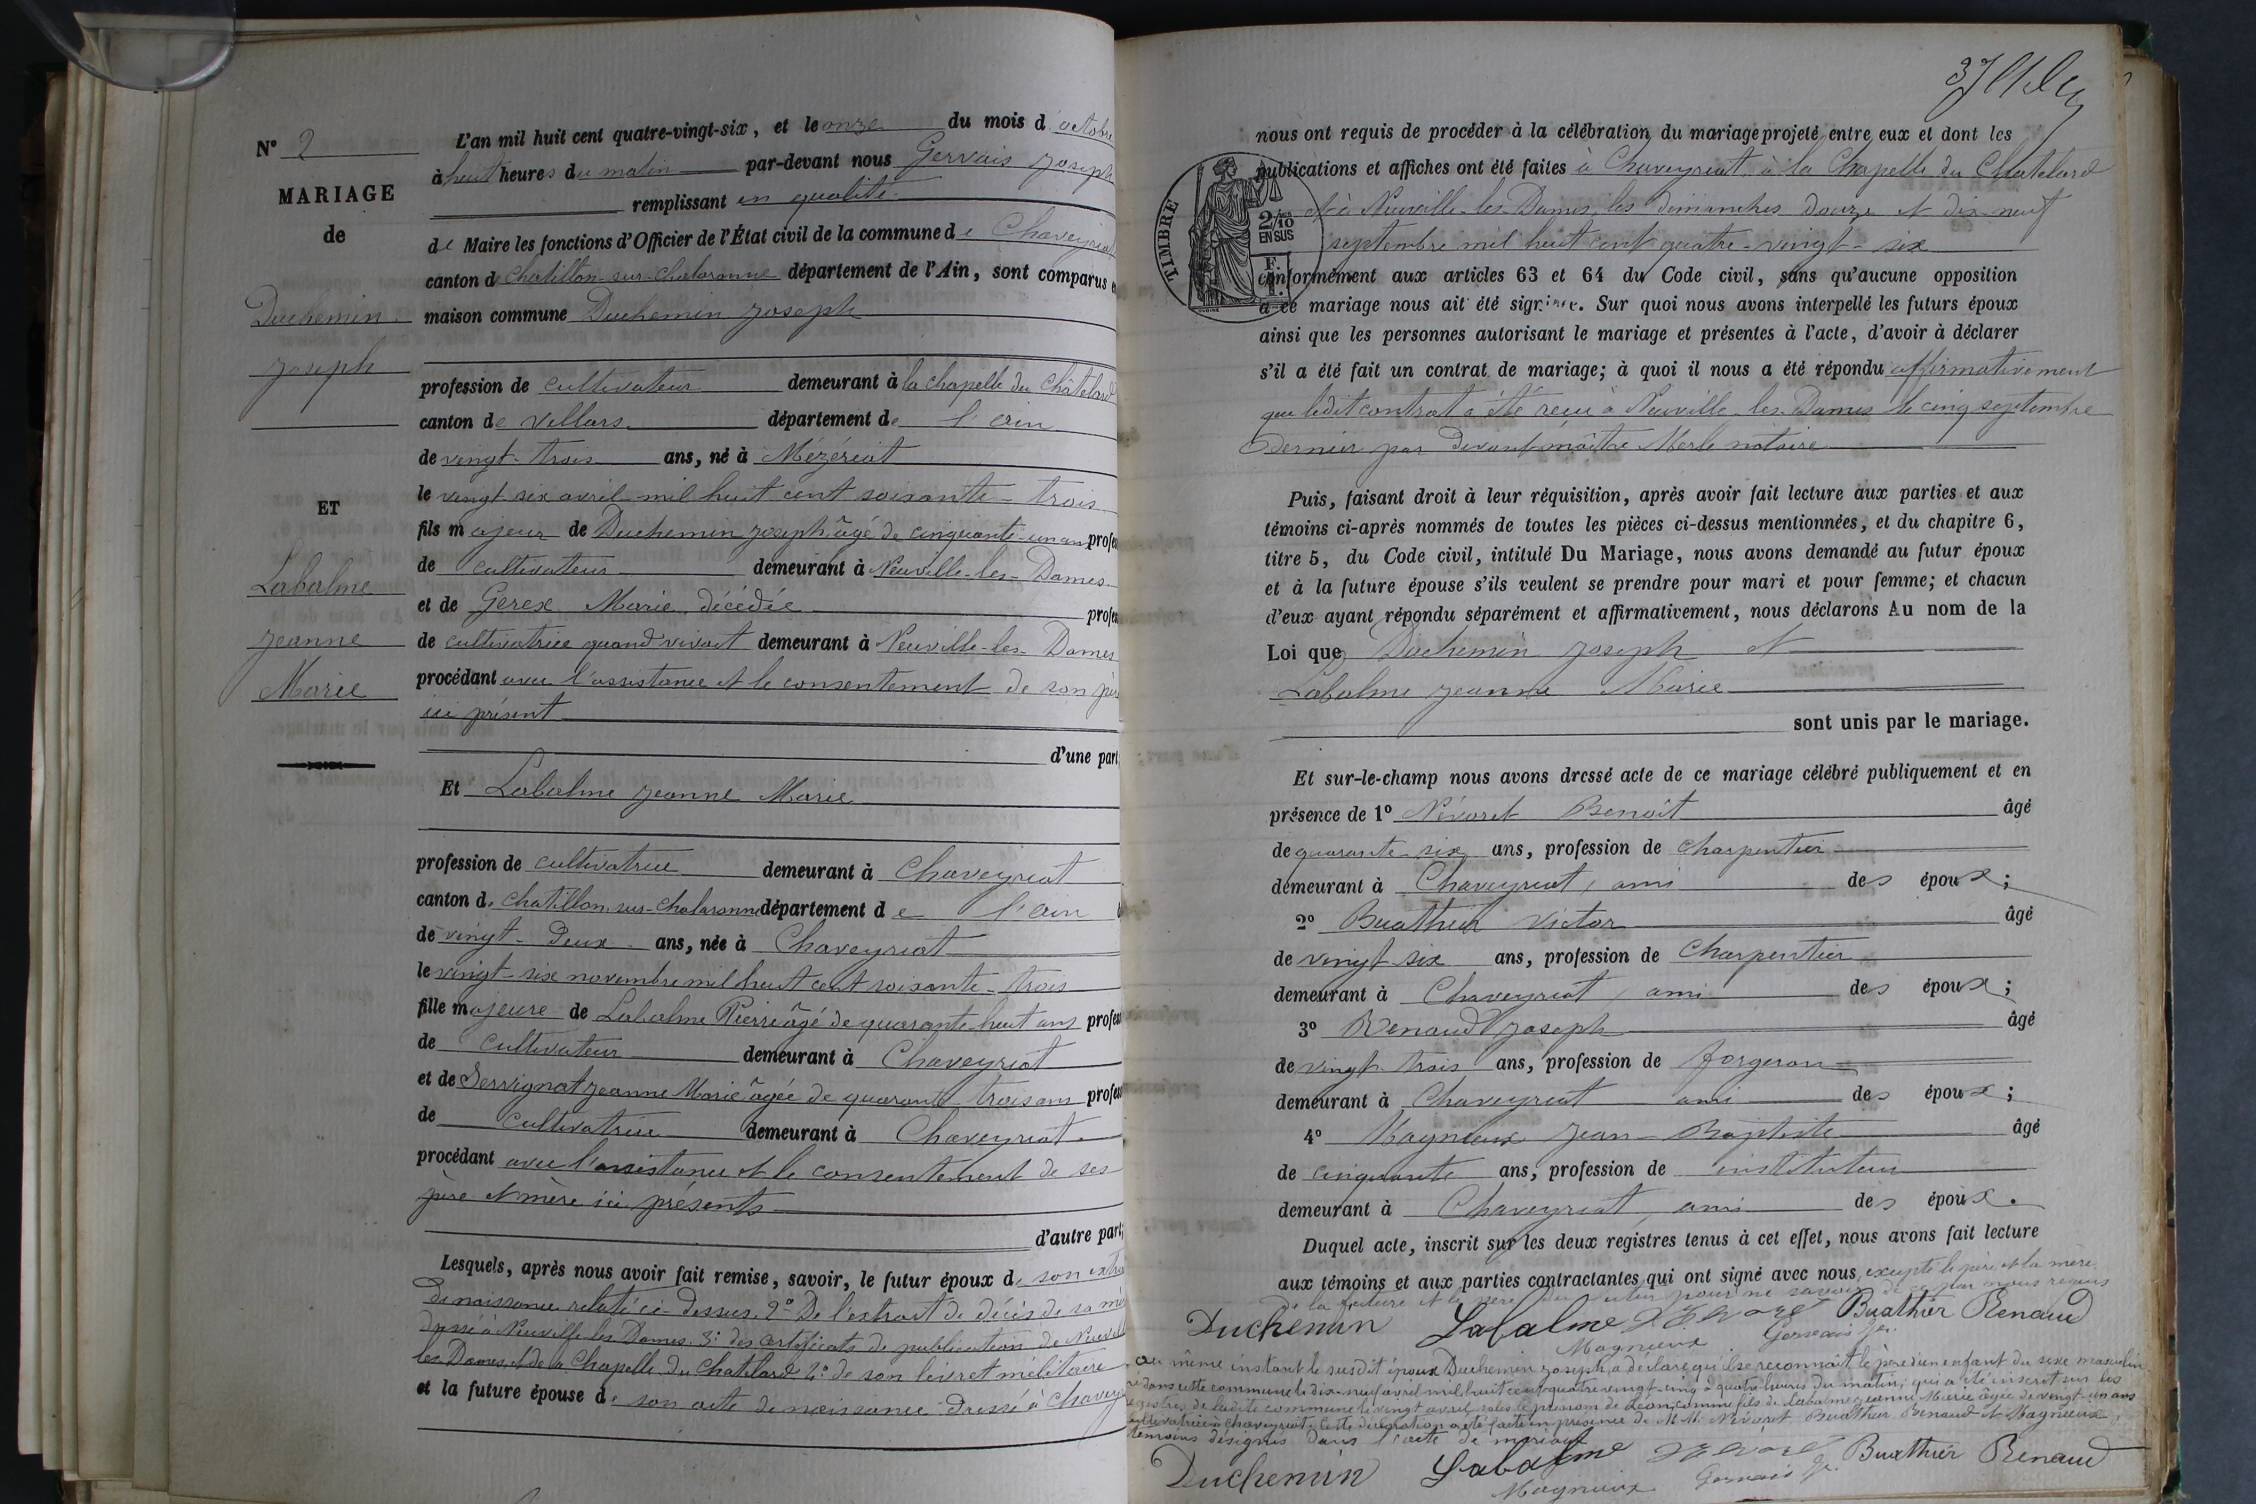 N° 2
MARIAGE
de
Duchemin
Joseph
ET
Labalme
Jeanne
Marie
L'an mil huit cent quatre-vingt-six, et le onze du mois d'octobre
à huit heures du matin par-devant nous Gervais Joseph
remplissant en qualité
de Maire les fonctions d'Officier de l'État civil de la commune de Chaveyriat
canton de Chatillon-sur-Chalaronne département de l'Ain, sont comparus en
maison commune Duchemin Joseph
profession de cultivateur demeurant à la chapelle du Châtelard
canton de Villars département de l'ain
de vingt-trois ans, né à Mézériat
le vingt-six avril mil huit cent soixante-trois
fils majeur de Duchemin Joseph âgé de cinquante-un ans profes
de cultivateur demeurant à Neuville-les-Dames
et de Gerex Marie décédée profes
de cultivatrice quand vivait demeurant à Neuville-les-Dames
procédant avec l'assistance et le consentement de son père
ici présent
d'une part;
Et Labalme Jeanne Marie
profession de cultivatrice demeurant à Chaveyriat
canton de Chatillon-sur-Chalaronne département de l'ain
de vingt-deux ans, née à Chaveyriat
le vingt-six novembre mil huit cent soixante-trois
fille majeure de Labalme Pierre âgé de quarante-huit ans profes
de cultivateur demeurant à Chaveyriat
et de Servignat Jeanne Marie âgée de quarante-trois ans profes
de cultivatrice demeurant à Chaveyriat
procédant avec l'assistance et le consentement de ses
père et mère ici présents
d'autre part;
Lesquels, après nous avoir fait remise, savoir, le futur époux de son extrait
de naissance relaté ci-dessus. 2° De l'extrait de décès de sa mère
dressé à Neuville les Dames. 3° des certificats de publication de Neuville
les Dames et de la Chapelle du Chatelard 4° de son livret militaire
et la future épouse de son acte de naissance dressé à Chaveyriat
37
TIMBRE
2/10 EN SUS
nous ont requis de procéder à la célébration du mariage projeté entre eux et dont les
publications et affiches ont été faites à Chaveyriat à la Chapelle du Chatelard
et à Neuville-les-Dames, les dimanches douze et dix-neuf
septembre mil huit cent quatre-vingt-six
conformément aux articles 63 et 64 du Code civil, sans qu'aucune opposition
à ce mariage nous ait été signifiée. Sur quoi nous avons interpellé les futurs époux
ainsi que les personnes autorisant le mariage et présentes à l'acte, d'avoir à déclarer
s'il a été fait un contrat de mariage; à quoi il nous a été répondu affirmativement
que ledit contrat a été reçu à Neuville-les-Dames le cinq septembre
dernier par devant maître Merle notaire
Puis, faisant droit à leur réquisition, après avoir fait lecture aux parties et aux
témoins ci-après nommés de toutes les pièces ci-dessus mentionnées, et du chapitre 6,
titre 5, du Code civil, intitulé Du Mariage, nous avons demandé au futur époux
et à la future épouse s'ils veulent se prendre pour mari et pour femme; et chacun
d'eux ayant répondu séparément et affirmativement, nous déclarons Au nom de la
Loi que Duchemin Joseph et
Labalme Jeanne Marie
sont unis par le mariage.
Et sur-le-champ nous avons dressé acte de ce mariage célébré publiquement et en
présence de 1° Névoret Benoît âgé
de quarante-six ans, profession de charpentier
demeurant à Chaveyriat, ami des époux;
2° Buathier Victor âgé
de vingt-six ans, profession de Charpentier
demeurant à Chaveyriat, ami des époux;
3° Renaud Joseph âgé
de vingt-trois ans, profession de forgeron
demeurant à Chaveyriat ami des époux;
4° Magnieux Jean-Baptiste âgé
de cinquante ans, profession de instituteur
demeurant à Chaveyriat, ami des époux.
Duquel acte, inscrit sur les deux registres tenus à cet effet, nous avons fait lecture
aux témoins et aux parties contractantes qui ont signé avec nous, excepté le père et la mère
de la future et le père du futur pour ne savoir de ce par nous requis
Duchemin Labalme Névoret Buathier Renaud
Magnieux Gervais Jh
au même instant le susdit époux Duchemin Joseph, a déclaré qu'il se reconnaît le père d'un enfant du sexe masculin
né dans cette commune le dix-neuf avril mil huit cent quatre-vingt-cinq à quatre heures du matin, qui a été inscrit sur les
registres de ladite commune le vingt avril, sous le prénom de Léon, comme fils de Labalme Jeanne Marie âgée de vingt-un ans
cultivatrice à Chaveyriat. Cette déclaration a été faite en présence de MM. Névoret Buathier Renaud et Magnieux,
témoins désignés dans l'acte de mariage
Duchemin Labalme Névoret Buathier Renaud
Magnieux Gervais Jh